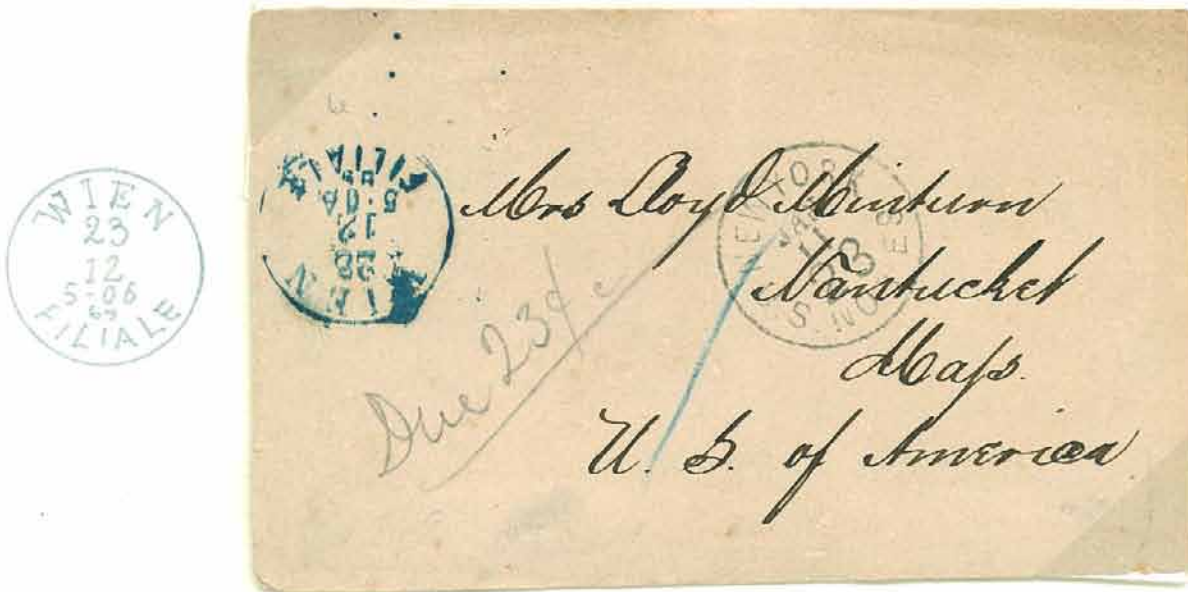 WIEN
23
12
5-06
69
FILIALE
WIEN
23
12
5-6A
FILIALE
Mrs Lloyd Minturn
Nantucket
Mass.
U. S. of America
Due 23¢
NEW YORK
JAN
11
23